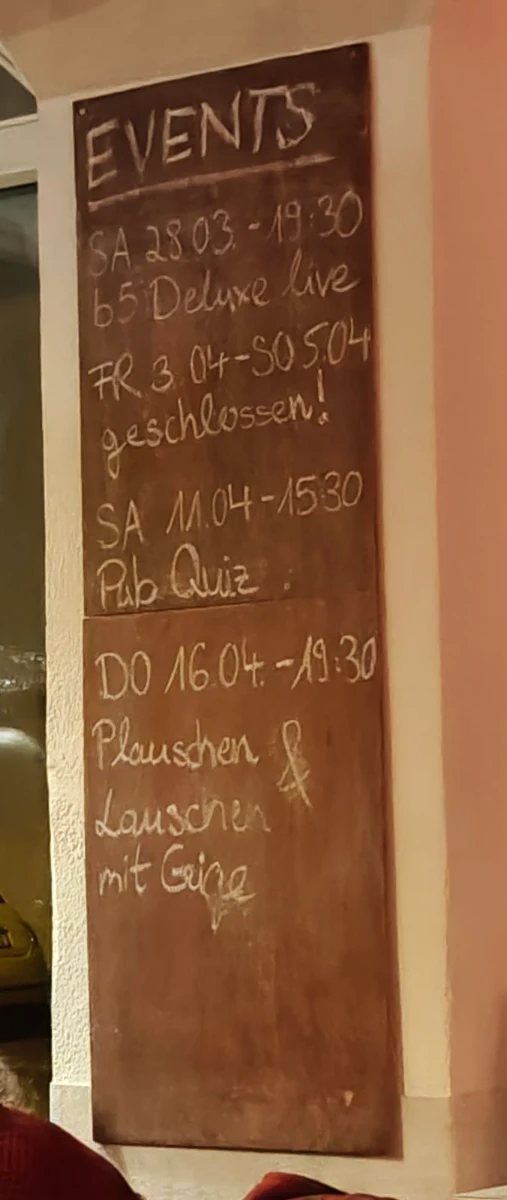 EVENTS
SA 28.03. - 19:30
b5 Deluxe live
FR 3.04 - SO 5.04
geschlossen!
SA 11.04 - 15:30
Pub Quiz
DO 16.04. - 19:30
Plauschen &
Lauschen
mit Geige